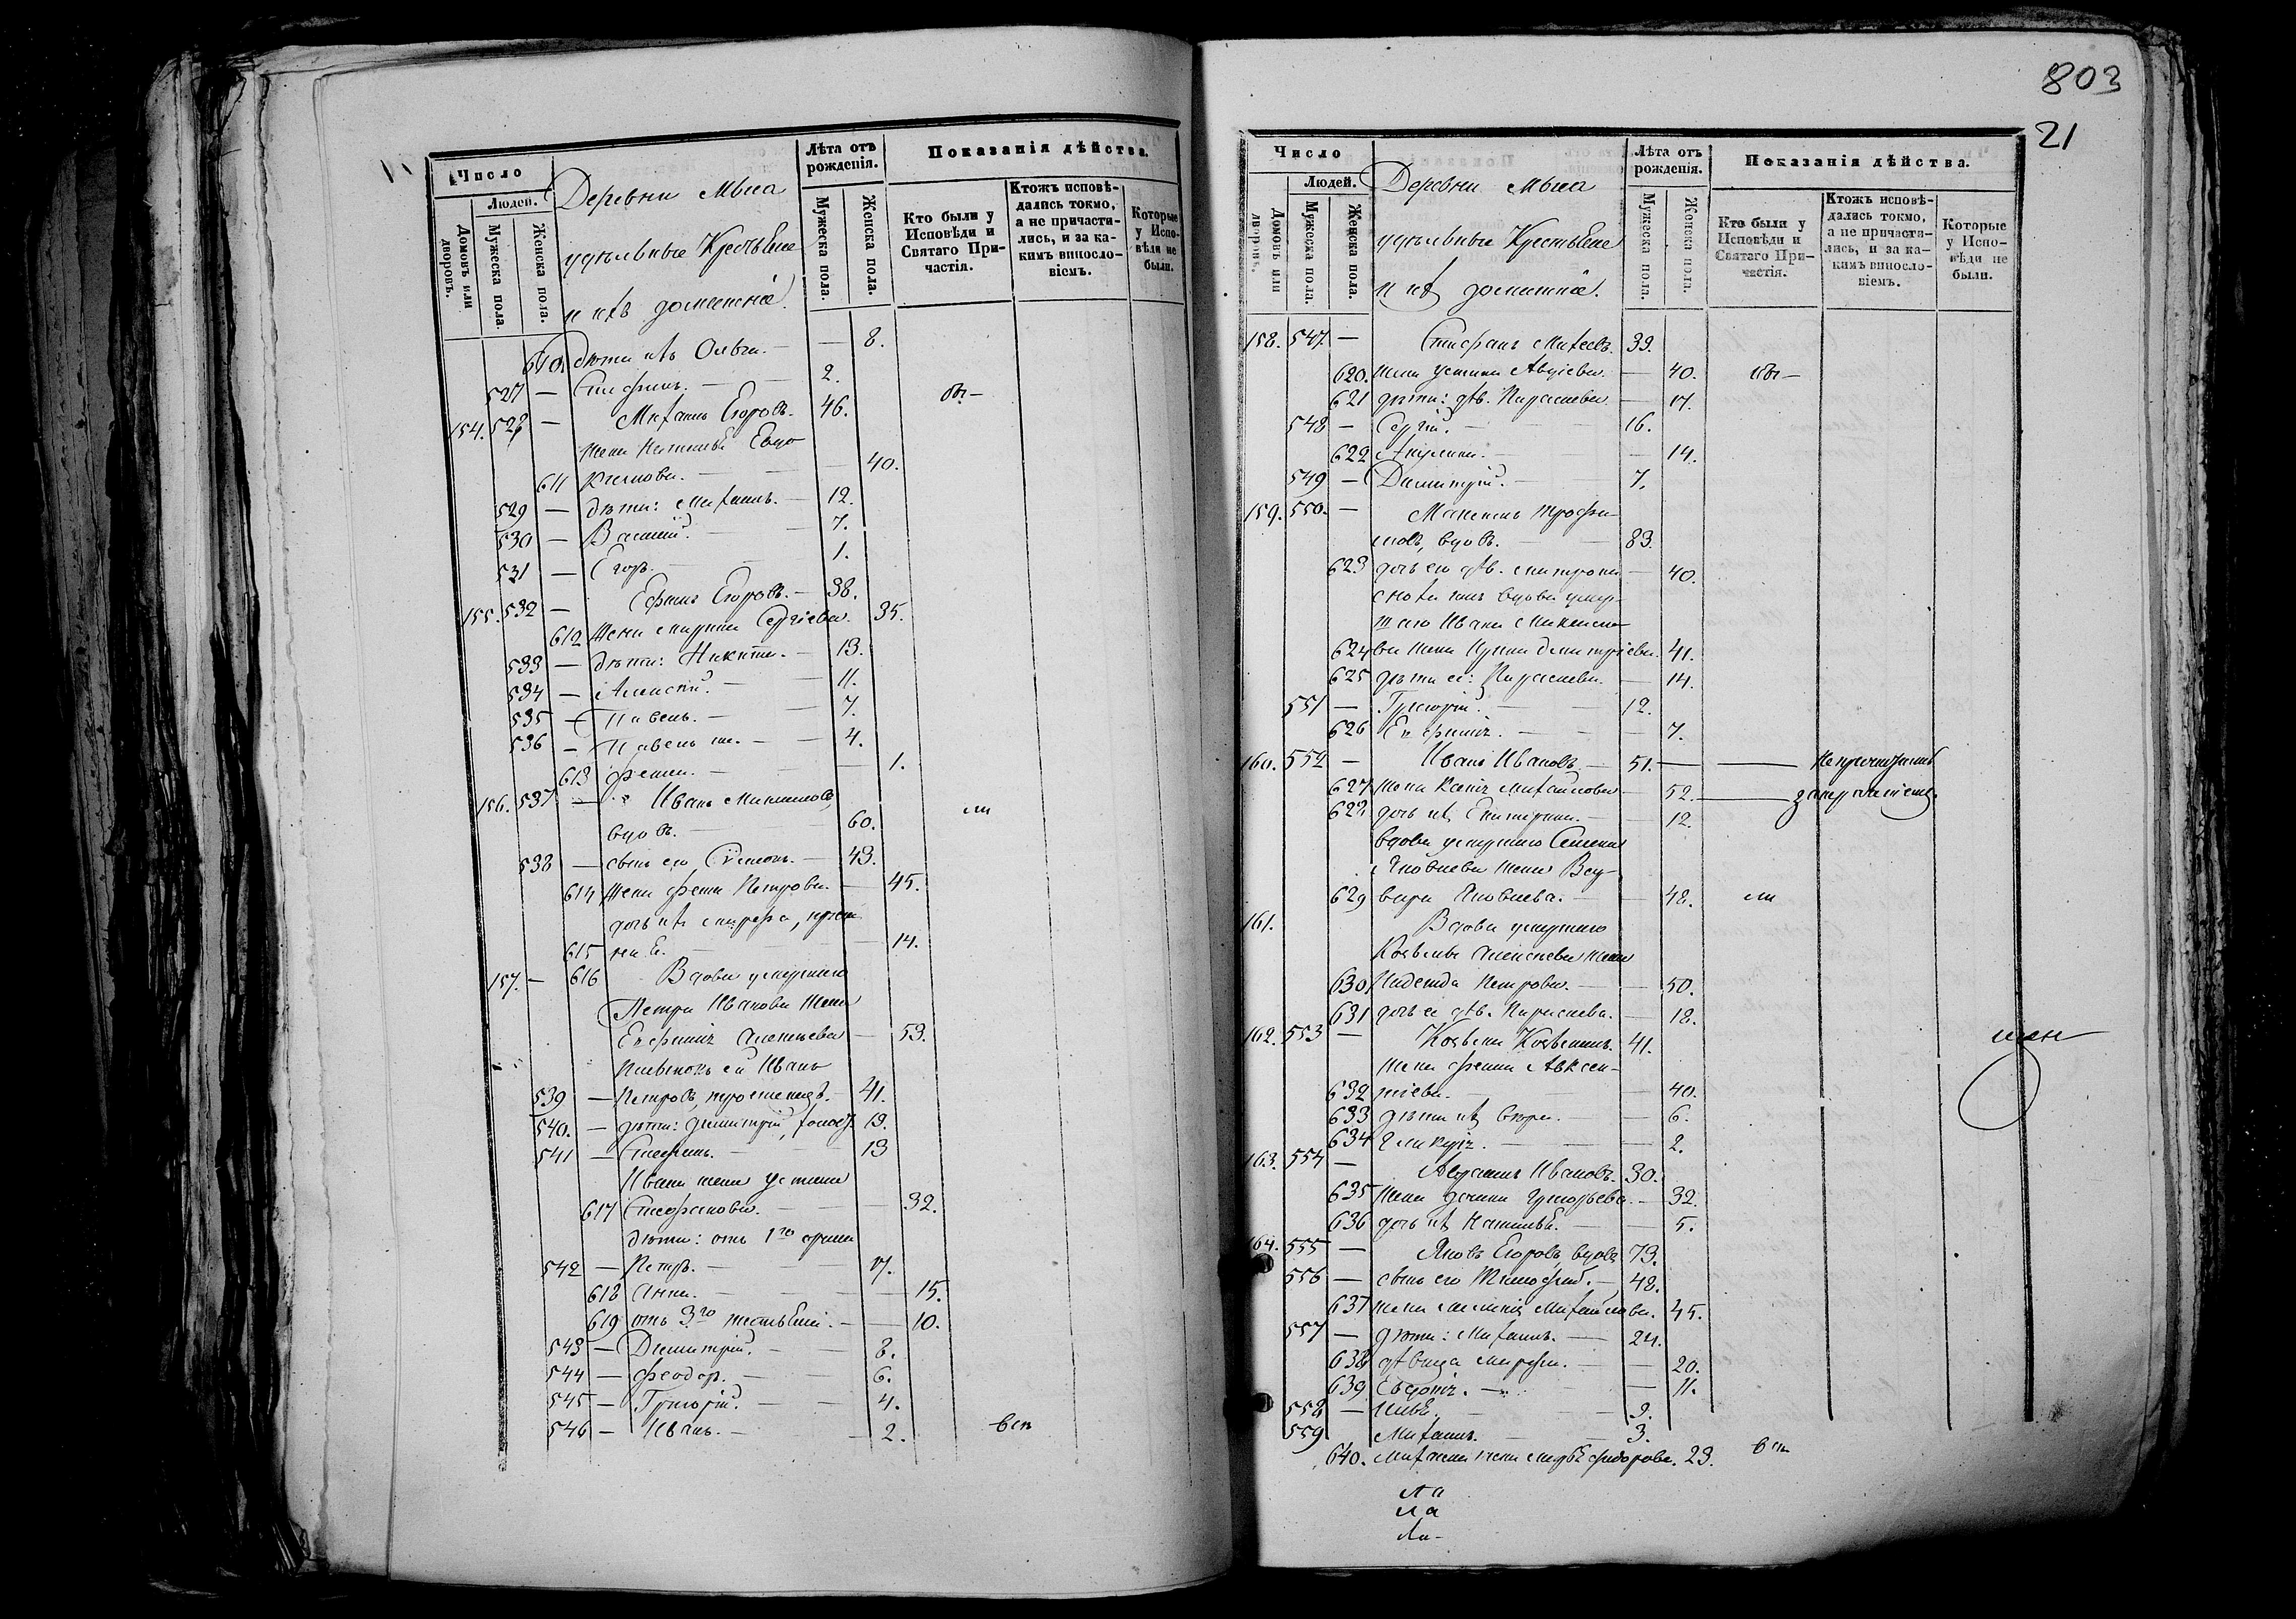 Число
Людей.
Домовъ или дворовъ.
Мужеска пола.
Женска пола.
Деревни Мыса
удѣльные Крестьяне
и ихъ домашніе.
Лѣта отъ рожденія.
Мужеска пола.
Женска пола.
Показанія дѣйства.
Кто были у Исповѣди и Святаго Причастія.
Ктожъ исповѣдались токмо, а не причастились, и за какимъ винословіемъ.
Которые у Исповѣди не были.
610 дѣти ихъ Ольга. — — 8.
527 — Стефанъ. — — 2.
154. 528 — Михаилъ Егоровъ. 46.
жена Наталья Евдо
611 кимова. — — 40.
529 — дѣти: Михаилъ. — 12.
530 — Василій. — 7.
531 — Егоръ. — 1.
155. 532 — Ефимъ Егоровъ. — 38.
612 жена Марина Сергіева. 35.
533 — дѣти: Никита. — 13.
534 — Алексій. — — 11.
535 — Павелъ. — — 7.
536 — Павелъ же. — — 4.
613 Фекла. — — 1.
156. 537 — Иванъ
вдовъ. — 60.
538 — сынъ его Сѵмеонъ. — 43.
614 жена Фекла Петрова. — 45.
дочь ихъ Марфа,
615 14.
157. — 616 Вдова умершаго
Петра Иванова жена
Евфимія Алексѣева — 53.
Иванъ
539 — Петровъ, 41.
540. — дѣти: Димитрій, холост. 19.
541 — Стефанъ. — 13
Ивана жена Устинья
617 Стефанова. — — 32.
дѣти: отъ 1го брака
542 — Петръ. — — 17.
618 Анна. — — 15.
619 отъ 3го — 10.
543 — Димитрій. — — 8.
544 — Феодоръ. — — 6.
545 — Григорій. — — 4.
546 — Иванъ. — — 2.
803
21
Число
Людей.
Домовъ или дворовъ.
Мужеска пола.
Женска пола.
Деревни Мыса
удѣльные Крестьяне
и ихъ домашніе.
Лѣта отъ рожденія.
Мужеска пола.
Женска пола.
Показанія дѣйства.
Кто были у Исповѣди и Святаго Причастія.
Ктожъ исповѣдались токмо, а не причастились, и за какимъ винословіемъ.
Которые у Исповѣди не были.
158. 547. — Стефанъ 39.
620. жена Устинья Авдіева. — 40.
621 дѣти: дѣв. Параскева — 17.
548 — Сергій. — 16.
622 Акулина. — — 14.
549 — Димитрій. — 7.
159. 550. — Максимъ Трофи-
мовъ, вдовъ. — 83.
623 дочь его дѣв. — 40.
сноха ихъ вдова умер-
шаго Ивана Максимо-
624 ва жена Ирина Димитріева. 41.
625 дѣти ея: Параскева. — 14.
551 — Григорій. — 12.
626 Евфимія. — — 7.
160. 552 — Иванъ Ивановъ. — 51. —
627 жена Ксенія Михайлова — 52. —
628 дочь ихъ Екатерина. — 12.
вдова умершаго Семена
Яковлева жена Вар-
629 вара Яковлева. — — 48.
161. Вдова умершаго
Козьмы Алексѣева жена
630 Надежда Петрова. — — 50.
631 дочь ея дѣв. Параскева. — 18.
162. 553 — Козьма Козьминъ. 41.
жена Фекла Авксен-
632 тіева. — — 40.
633 дѣти ихъ — 6.
634 Гликерія. — — 2.
163. 554 — Авраамъ Ивановъ. 30.
635 жена Григорьева. — 32.
636 дочь ихъ Наталья. — — 5.
164. 555 — Яковъ Егоровъ, вдовъ 73.
556 — сынъ его Тимофей. — 48.
637 жена Михайлова. 45.
557 — дѣти: Михаилъ. — 24.
638 дѣвица Марфа. — — 20.
639 Евдокія. — — 11.
558 — Илья. — 9.
559 Михаилъ. — 3.
640. Михаила жена Федорова. 23.